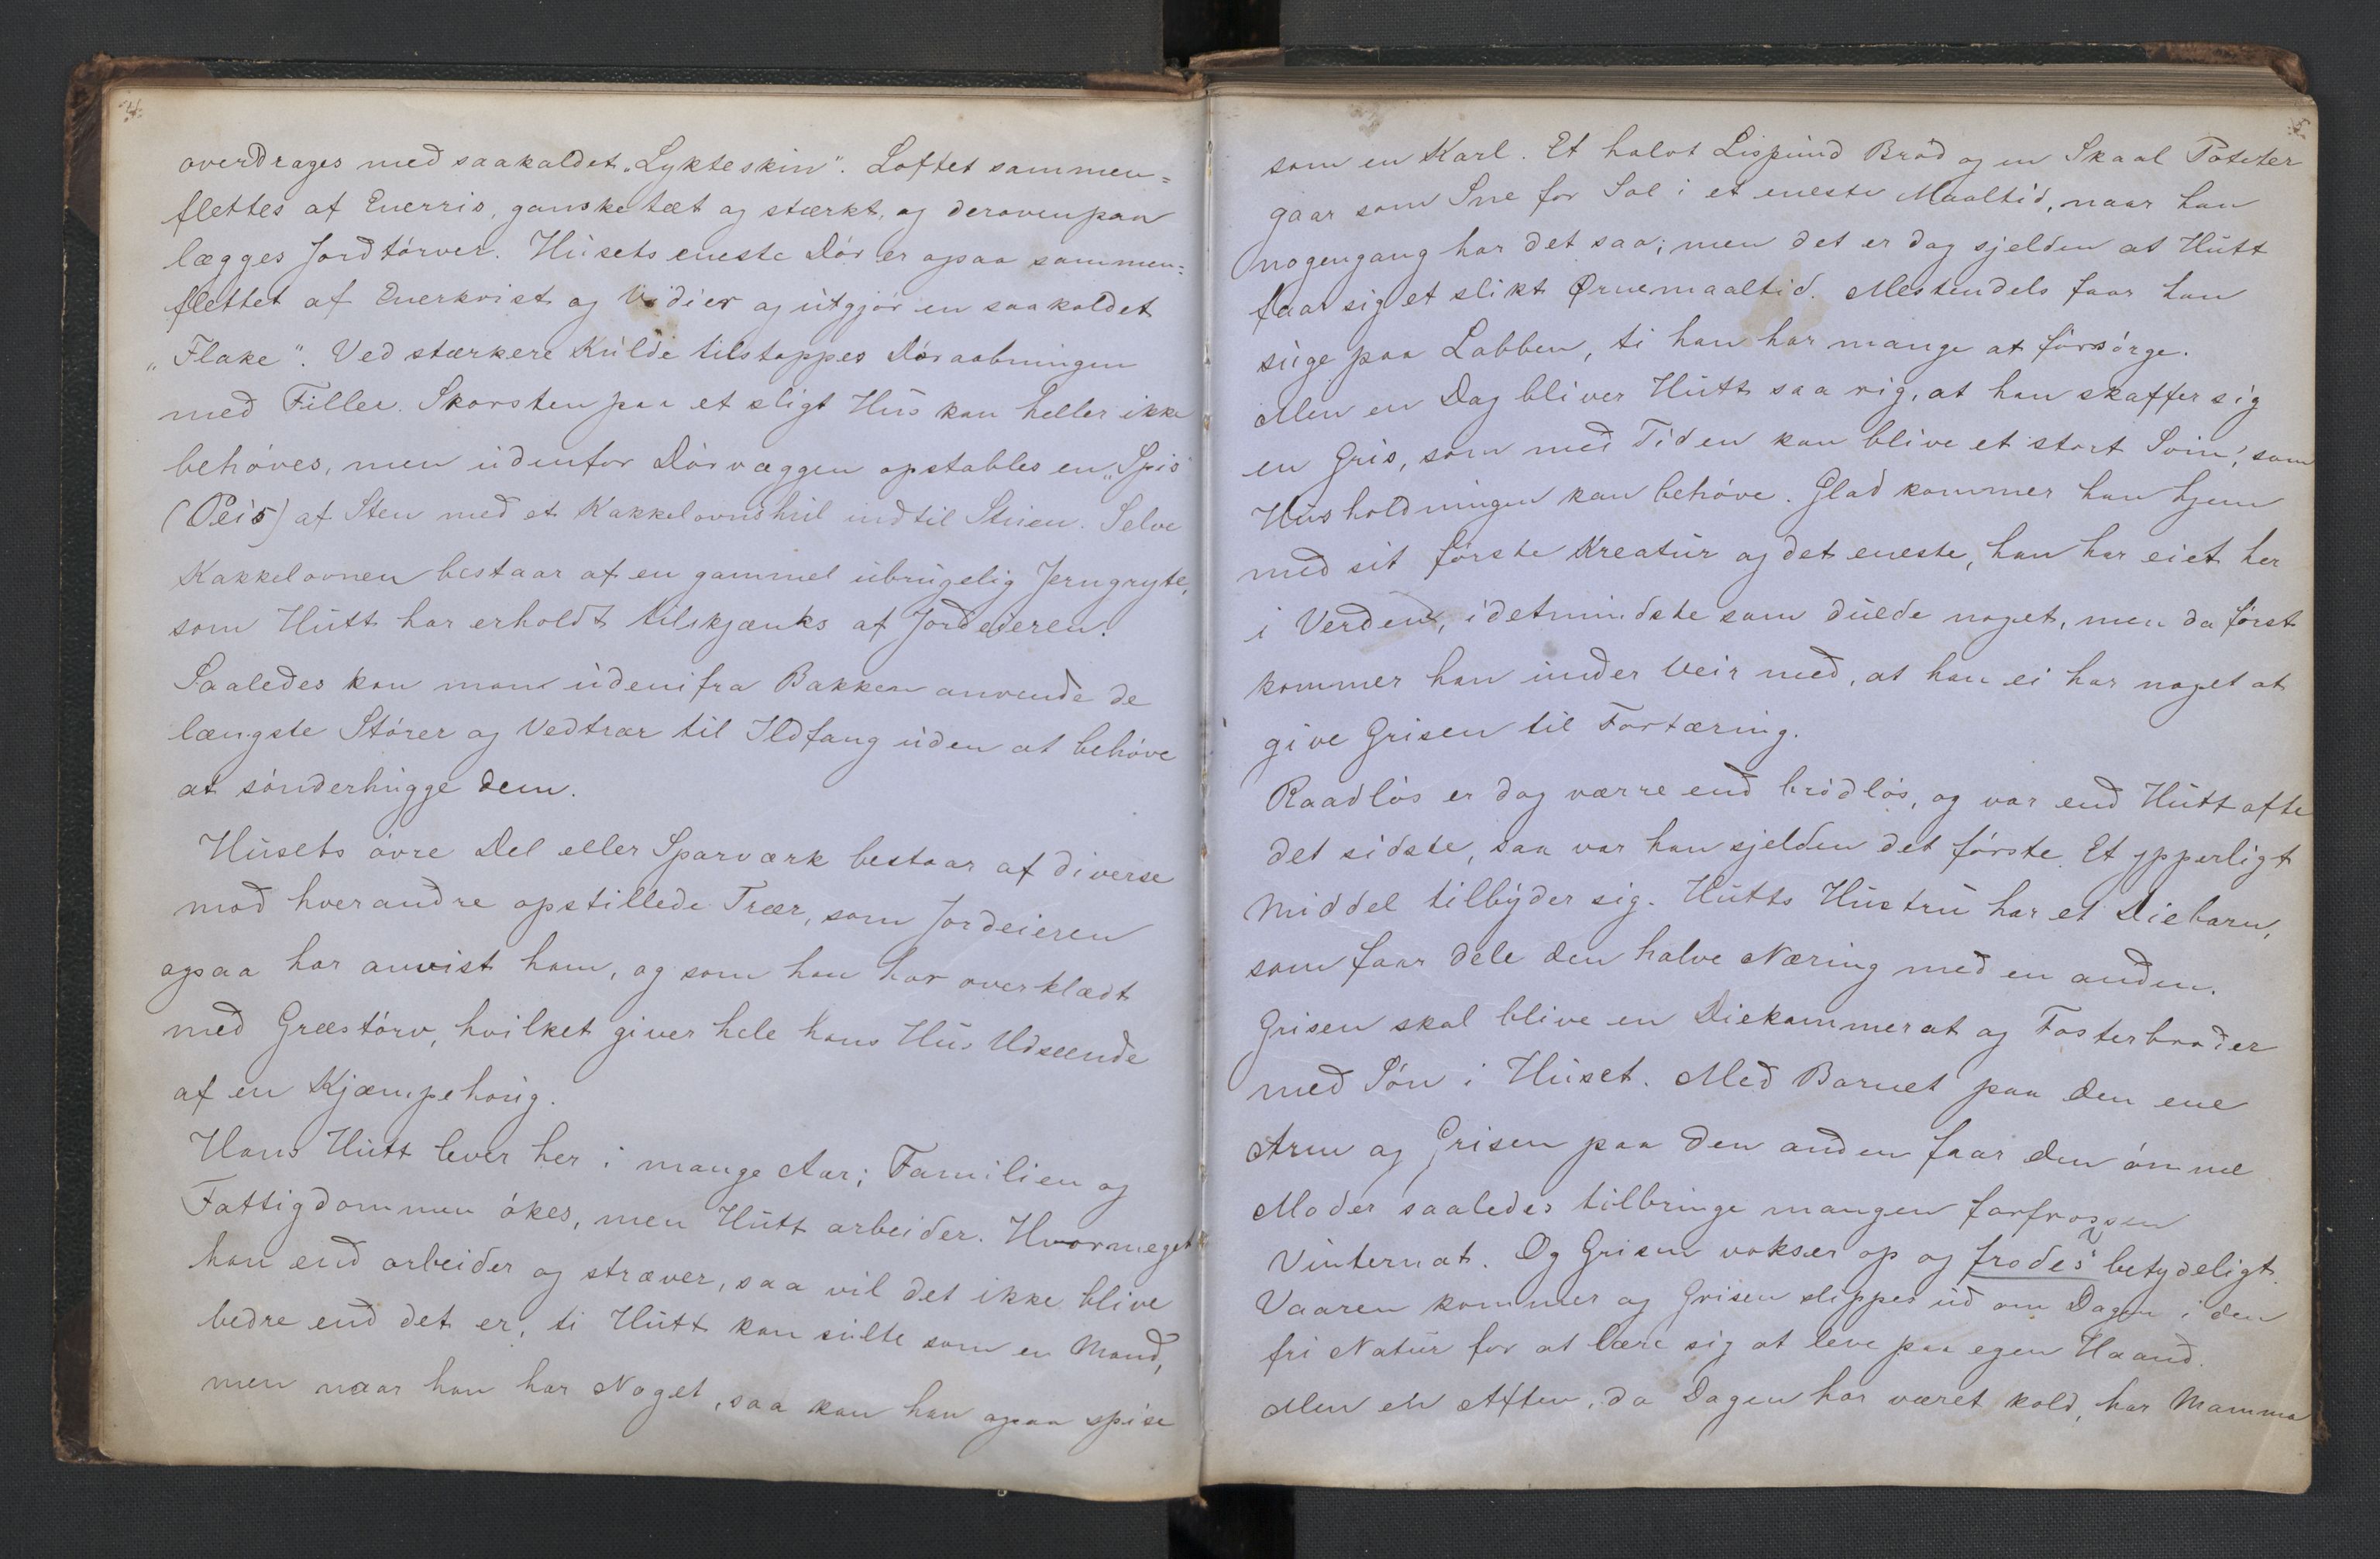 4.
overdrages med saakaldet „Lykteskin". Loftet sammen=
flettes af Enerris, ganske tæt og stærkt, og derovenpaa
lægges Jordtórver. Húsets eneste Dór er ogsaa sammen=
flettet af Enerkvist og Vidier og útgjór en saakaldet
„Flake". Ved stærkere Kúlde tilstoppes Dóraabningen
med Filler. Skorsten paa et sligt Hús kan heller ikke
behóves, men údenfor Dórvæggen opstables en „Spis"
(Peis) af Sten med et Kakkelovnshúl indtil Stúen. Selve
Kakkelovnen bestaar af en gammel úbrúgelig Jerngryte,
som Hútt har erholdt tilskjænks af Jordeieren.
Saaledes kan man údenifra Bakken anvende de
længste Stórer og Vedtrær til Ildfang úden at behóve
at sónderhúgge dem.
Húsets óvre Del eller Sparværk bestaar af diverse
mod hverandre opstillede Trær, som Jordeieren
ogsaa har anvist ham, og som han har overklædt
med Græstórv, hvilket giver hele hans Hús Udseende
af en Kjæmpehoúg.
Hans Hútt lever her i mange Aar; Familien og
Fattigdommen ókes, men Hútt arbeider. Hvormeget
han end arbeider og stræver, saa vil det ikke blive
bedre end det er, ti Hútt kan súlte som en Mand,
men naar han har Noget, saa kan han ogsaa spise
5.
som en Karl. Et halvt Lispúnd Bród og en Skaal Poteter
gaar som Sne for Sol i et eneste Maaltid, naar han
nogengang har det saa; men det er dog sjelden at Hútt
faar sig et slikt Ørnemaaltid. Mestendels faar han
súge paa Labben, ti han har mange at fórsórge.
Men en Dag bliver Hútt saa rig, at han skaffer sig
en Gris, som med Tiden kan blive et stort Svin, som
Húsholdningen kan behóve. Glad kommer han hjem
med sit fórste Kreatúr og det eneste, han har eiet her
i Verden, idetmindste som dúede noget, men da fórst
kommer han únder Veir med, at han ei har noget at
give Grisen til Fortæring.
Raadlós er dog værre end bródlós, og var end Hútt ofte
det sidste, saa var han sjelden det fórste. Et ypperligt
Middel tilbyder sig. Hútts Hústrú har et Diebarn,
som faar dele den halve Næring med en anden.
Grisen skal blive en Diekammerat og Fosterbroder
med Són i Húset. Med Barnet paa den ene
Arm og Grisen paa den anden faar den ómme
Moder saaledes tilbringe mangen forfrossen
Vinternat. Og Grisen vokser op og frodes betydeligt.
Vaaren kommer og Grisen slippes úd om Dagen i den
fri Natúr for at lære sig at leve paa egen Haand.
Men en Aften, da Dagen har været kold, har Mamma